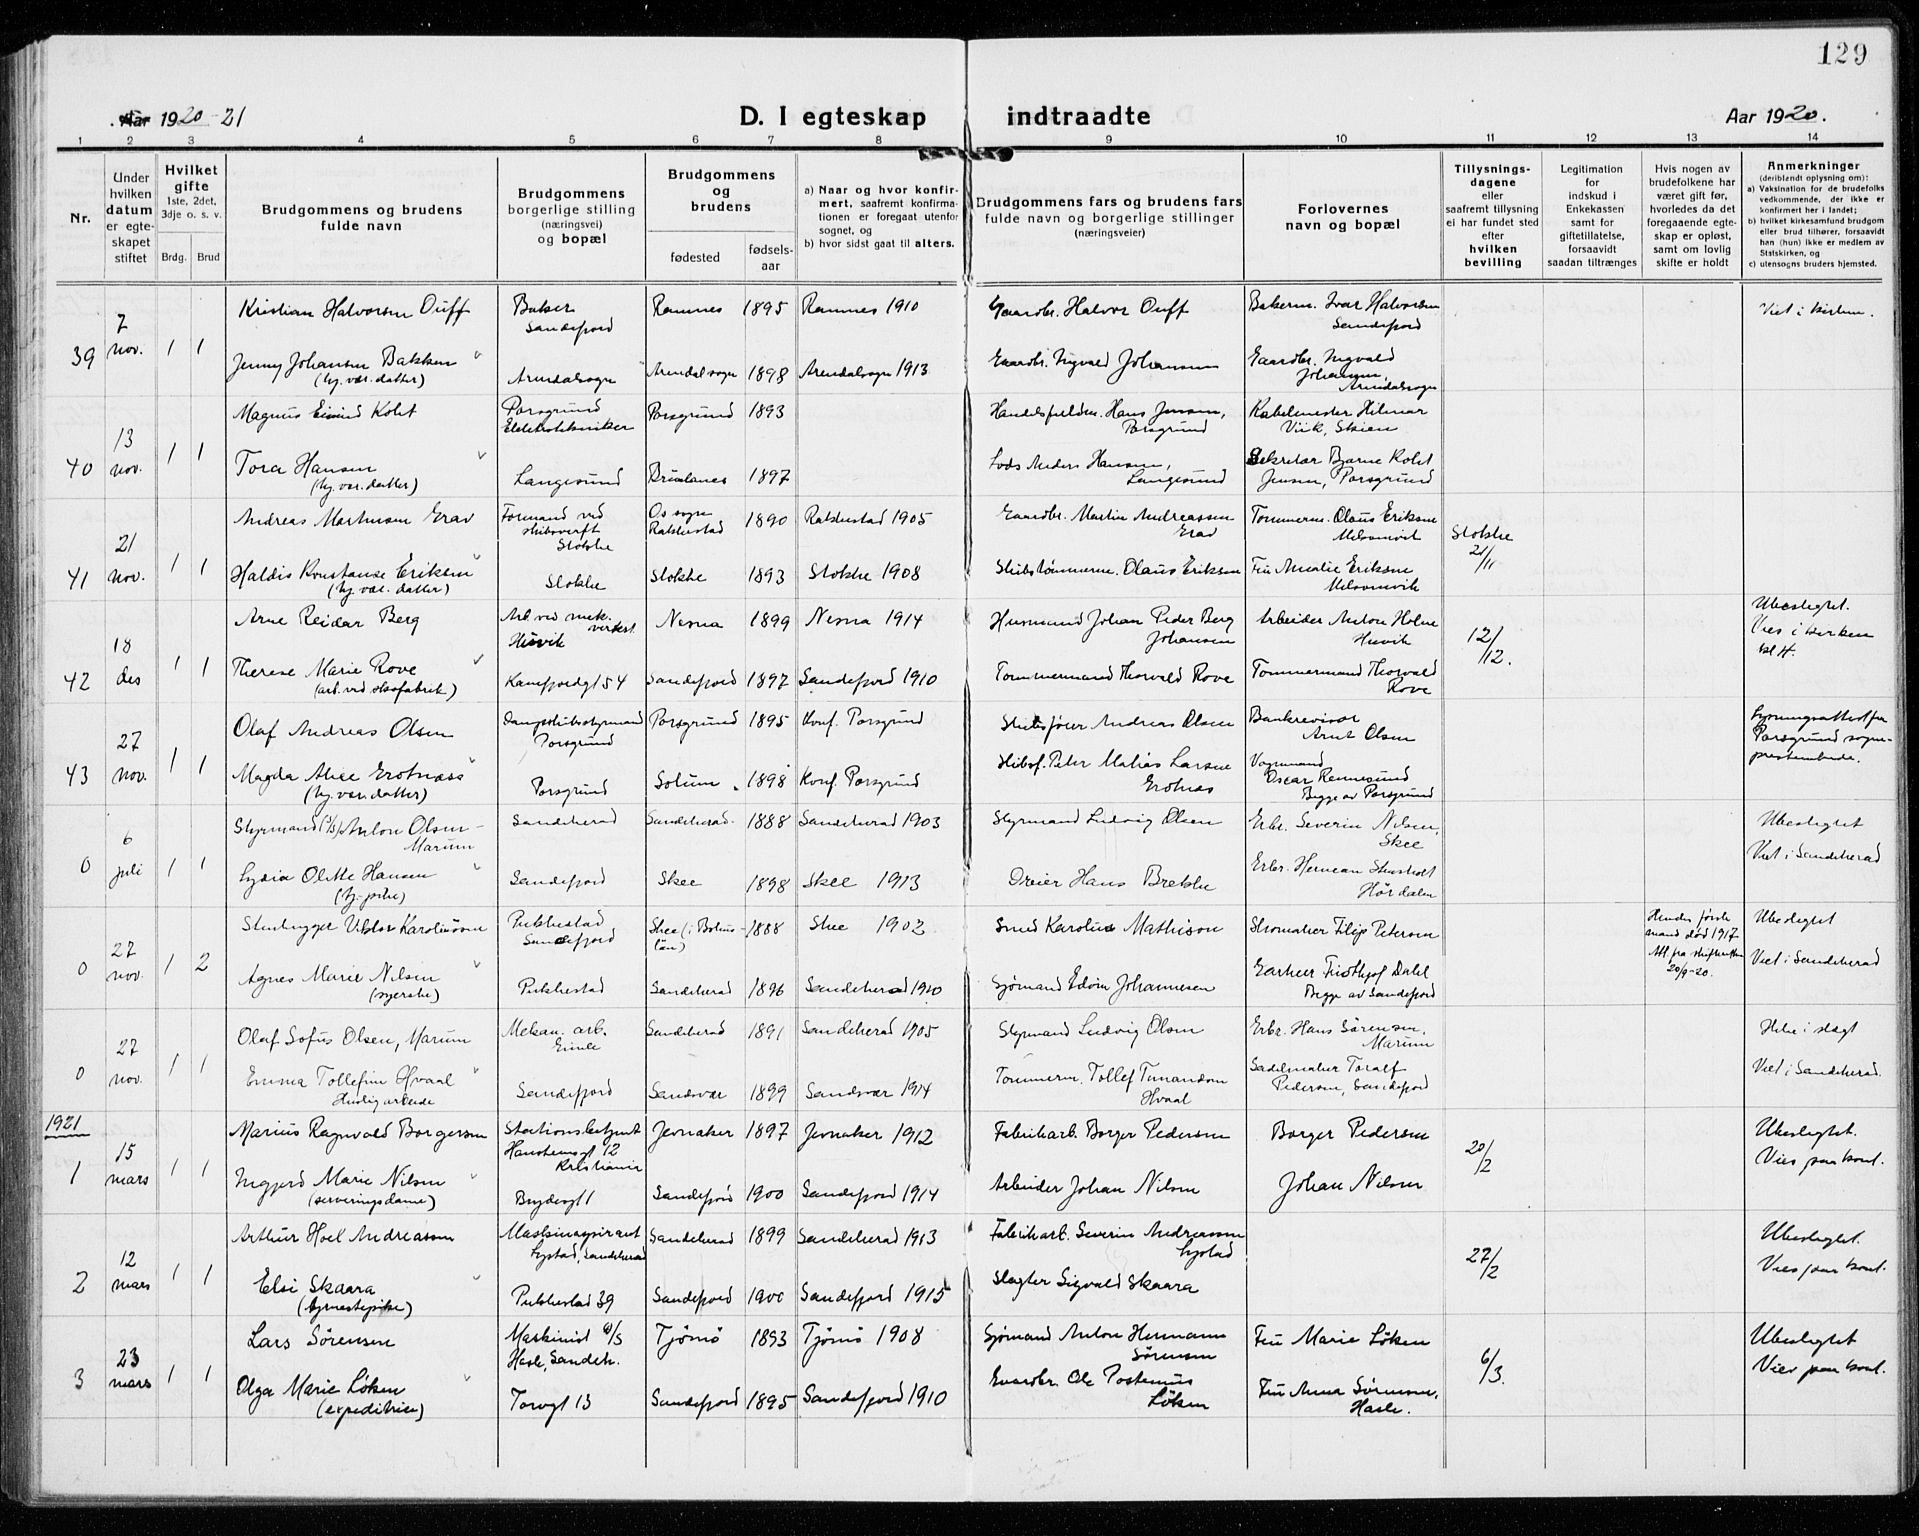 129
Aar 1920-21
D. I egteskap indtraadte
Aar 1920.
1 2 3 4 5 6 7 8 9 10 11 12 13 14
Nr.
Under hvilken datum er egteskapet stiftet
Hvilket gifte
1ste, 2det, 3dje o. s. v.
Brdg. Brud
Brudgommens og brudens fulde navn
Brudgommens borgerlige stilling (næringsvei) og bopæl
Brudgommens og brudens
fødested
fødselsaar
a) Naar og hvor konfirmert, saafremt konfirmationen er foregaat utenfor sognet, og
b) hvor sidst gaat til alters.
Brudgommens fars og brudens fars fulde navn og borgerlige stillinger (næringsveier)
Forlovernes navn og bopæl
Tillysningsdagene eller saafremt tillysning ei har fundet sted efter hvilken bevilling
Legitimation for indskud i Enkekassen samt for giftetillatelse, forsaavidt saadan tiltrænges
Hvis nogen av brudefolkene har været gift før, hvorledes da det foregaaende egteskap er opløst, samt om lovlig skifte er holdt
Anmerkninger
(deriblendt oplysning om):
a) Vaksination for de brudefolks vedkommende, der ikke er konfirmert her i landet;
b) hvilket kirkesamfund brudgom eller brud tilhører, forsaavidt han (hun) ikke er medlem av Statskirken, og
c) utensogns bruders hjemsted.
39 7 nov. 1 1
Kristian Halvorsen Ouff Baker Sandefjord Ramnes 1895 Ramnes 1910 Gaardbr. Halvor Ouff Bakerm. Ivar Halvorsen Sandefjord Viet i kirken.
Jenny Johansen Bakken (hj. vær. datter) Arendalsogn Arendalsogn 1898 Arendalsogn 1913 Gaardbr. Ingvald Johansen Gaardbr. Ingvald Johansen, Arendalsogn
40 13 nov. 1 1
Magnus Eivind Kolst Porsgrund Elektrotekniker Porsgrund 1893 Hans Jensen, Porsgrund Kabelmester Hilmar Viik, Skien
Tora Hansen (hj. vær. datter) Langesund 1897 Lods Anders Hansen, Langesund Sekretær Bjarne Kolst Jensen, Porsgrund
41 21 nov. 1 1
Andreas Martinsen Grav Formand ved skibsverft Stokke Os sogn Rakkestad 1890 Rakkestad 1905 Gaardbr. Martin Andreassen Grav Tømmerm. Olaus Eriksen Melsomvik Stokke 21/11
Haldis Konstanse Eriksen (hj. vær. datter) Stokke Stokke 1893 Stokke 1908 Skibstømmerm. Olaus Eriksen Fru Amalie Eriksen Melsomvik
42 18 des 1 1
Arne Reidar Berg Arb. ved mek. verkst. Husvik Nesna 1899 Nesna 1914 Husmand Johan Peder Berg Johansen Arbeider Anton Holm Husvik 12/12. Ubeslegtet. Vies i kirken kl 4.
Therese Marie Rove (arb. ved skofabrik) Kamfjordgt 54 Sandefjord 1897 Sandefjord 1910 Tømmermand Thorvald Rove Tømmermand Thorvald Rove
43 27 nov. 1 1
Olaf Andreas Olsen Dampskibsstyrmand Porsgrund Porsgrund 1895 Konf. Porsgrund Skibsfører Andreas Olsen Bankrevisor Arnt Olsen Lysningsattest fra Porsgrund sogneprestembede.
Magda Alice Grotnæss (hj. vær. datter) Porsgrund Solum 1898 Konf. Porsgrund Skibsf. Peter Matias Larsen Grotnæs Vognmand Oscar Rennesund Begge av Porsgrund
0 6 juli 1 1
Styrmand Anton Olsen-Marum Sandeherad Sandeherad 1888 Sandeherad 1903 Styrmand Ludvig Olsen Grbr. Severin Nilsen, Skee Ubeslegtet
Lydia Olette Hansen (tj.-pike) Sandefjord Skee 1898 Skee 1913 Dreier Hans Brekke Gbr. Herman Hørdalen Viet i Sandeherad
0 27 nov. 1 2
Stenhugger Viktor Karoliusson Pukkestad Sandefjord Skee (i Bohuslän) 1888 Skee 1902 Smed Karolus Mathison Skomaker Filip Petersen Hendes første mand død 1917 Att. fra skifteretten 20/9-20. Ubeslegtet
Agnes Marie Nilsen (syerske) Pukkestad Sandeherad 1896 Sandeherad 1910 Sjømand Edvin Johannesen Gartner Fridthjof Dahl Begge av Sandefjord Viet i Sandeherad
0 27 nov. 1 1
Olaf Sofus Olsen, Marum Mekan. arb. Gimle Sandeherad 1891 Sandeherad 1905 Styrmand Ludvig Olsen Grbr. Hans Sørensen, Marum Ikke i slegt
Emma Tollefine Hvaal Huslig arbeide Sandefjord Sandsvær 1899 Sandsvær 1914 Tømmerm. Tollef Hvaal Sadelmaker Toralf Pedersen, Sandefjord Viet i Sandeherad.
1921
1 15 mars 1 1
Marius Ragnvald Borgersen Stationsbetjent Hausmansgt 12 Kristiania Jevnaker 1897 Jevnaker 1912 Fabrikarb. Borger Pedersen Borger Pedersen 20/2 Ubeslegtet. Vies paa kont.
Ingjerd Marie Nilsen (serveringsdame) Brydesgt 1 Sandefjord 1900 Sandefjord 1914 Arbeider Johan Nilsen Johan Nilsen
2 12 mars 1 1
Arthur Hoel Andreassen Maskinaspirant Lystad, Sandeherad Sandeherad 1899 Sandeherad 1913 Fabrikarb. Severin Andreassen Lystad 27/2 Ubeslegtet. Vies paa kont.
Elsi Skaara (tjenestepike) Pukkestad 39 Sandefjord 1900 Sandefjord 1915 Slagter Sigvald Skaara
3 23 mars 1 1
Lars Sørensen Maskinist Hasle, Sandeh. Tjømø 1893 Tjømø 1908 Sjømand Anton Hermann Sørensen Fru Marie Løken 6/3. Ubeslegtet Vies paa kont.
Olga Marie Løken (expeditrice) Torvgt 13 Sandefjord 1895 Sandefjord 1910 Gaardbr. Ole Løken Fru Anna Sørensen, Hasle.